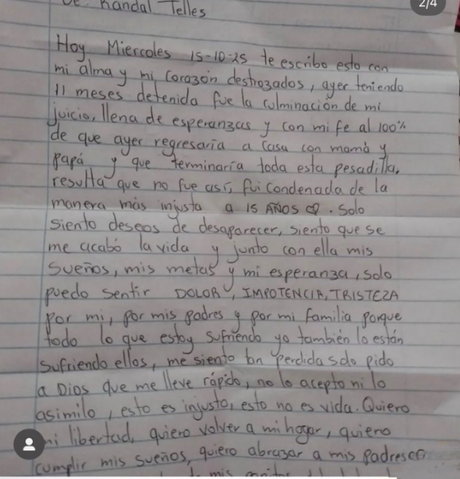 2/4
De Randal Telles
Hoy Miercoles 15-10-25 te escribo esto con
mi alma y mi corazón destrozados, ayer teniendo
11 meses detenida fue la culminación de mi
juicio, llena de esperanzas y con mi fe al 100%
de que ayer regresaria a casa con mamá y
papá y que terminaría toda esta pesadilla,
resulta que no fue así, fui condenada de la
manera más injusta a 15 AÑOS. Solo
siento deseos de desaparecer, siento que se
me acabó la vida y junto con ella mis
sueños, mis metas y mi esperanza, solo
puedo sentir DOLOR, IMPOTENCIA, TRISTEZA
por mi, por mis padres y por mi familia porque
todo lo que estoy sufriendo yo también lo están
sufriendo ellos, me siento tan perdida solo pido
a Dios que me lleve rápido, no lo acepto ni lo
asimilo, esto es injusto, esto no es vida. Quiero
mi libertad, quiero volver a mi hogar, quiero
cumplir mis sueños, quiero abrazar a mis padres
mis